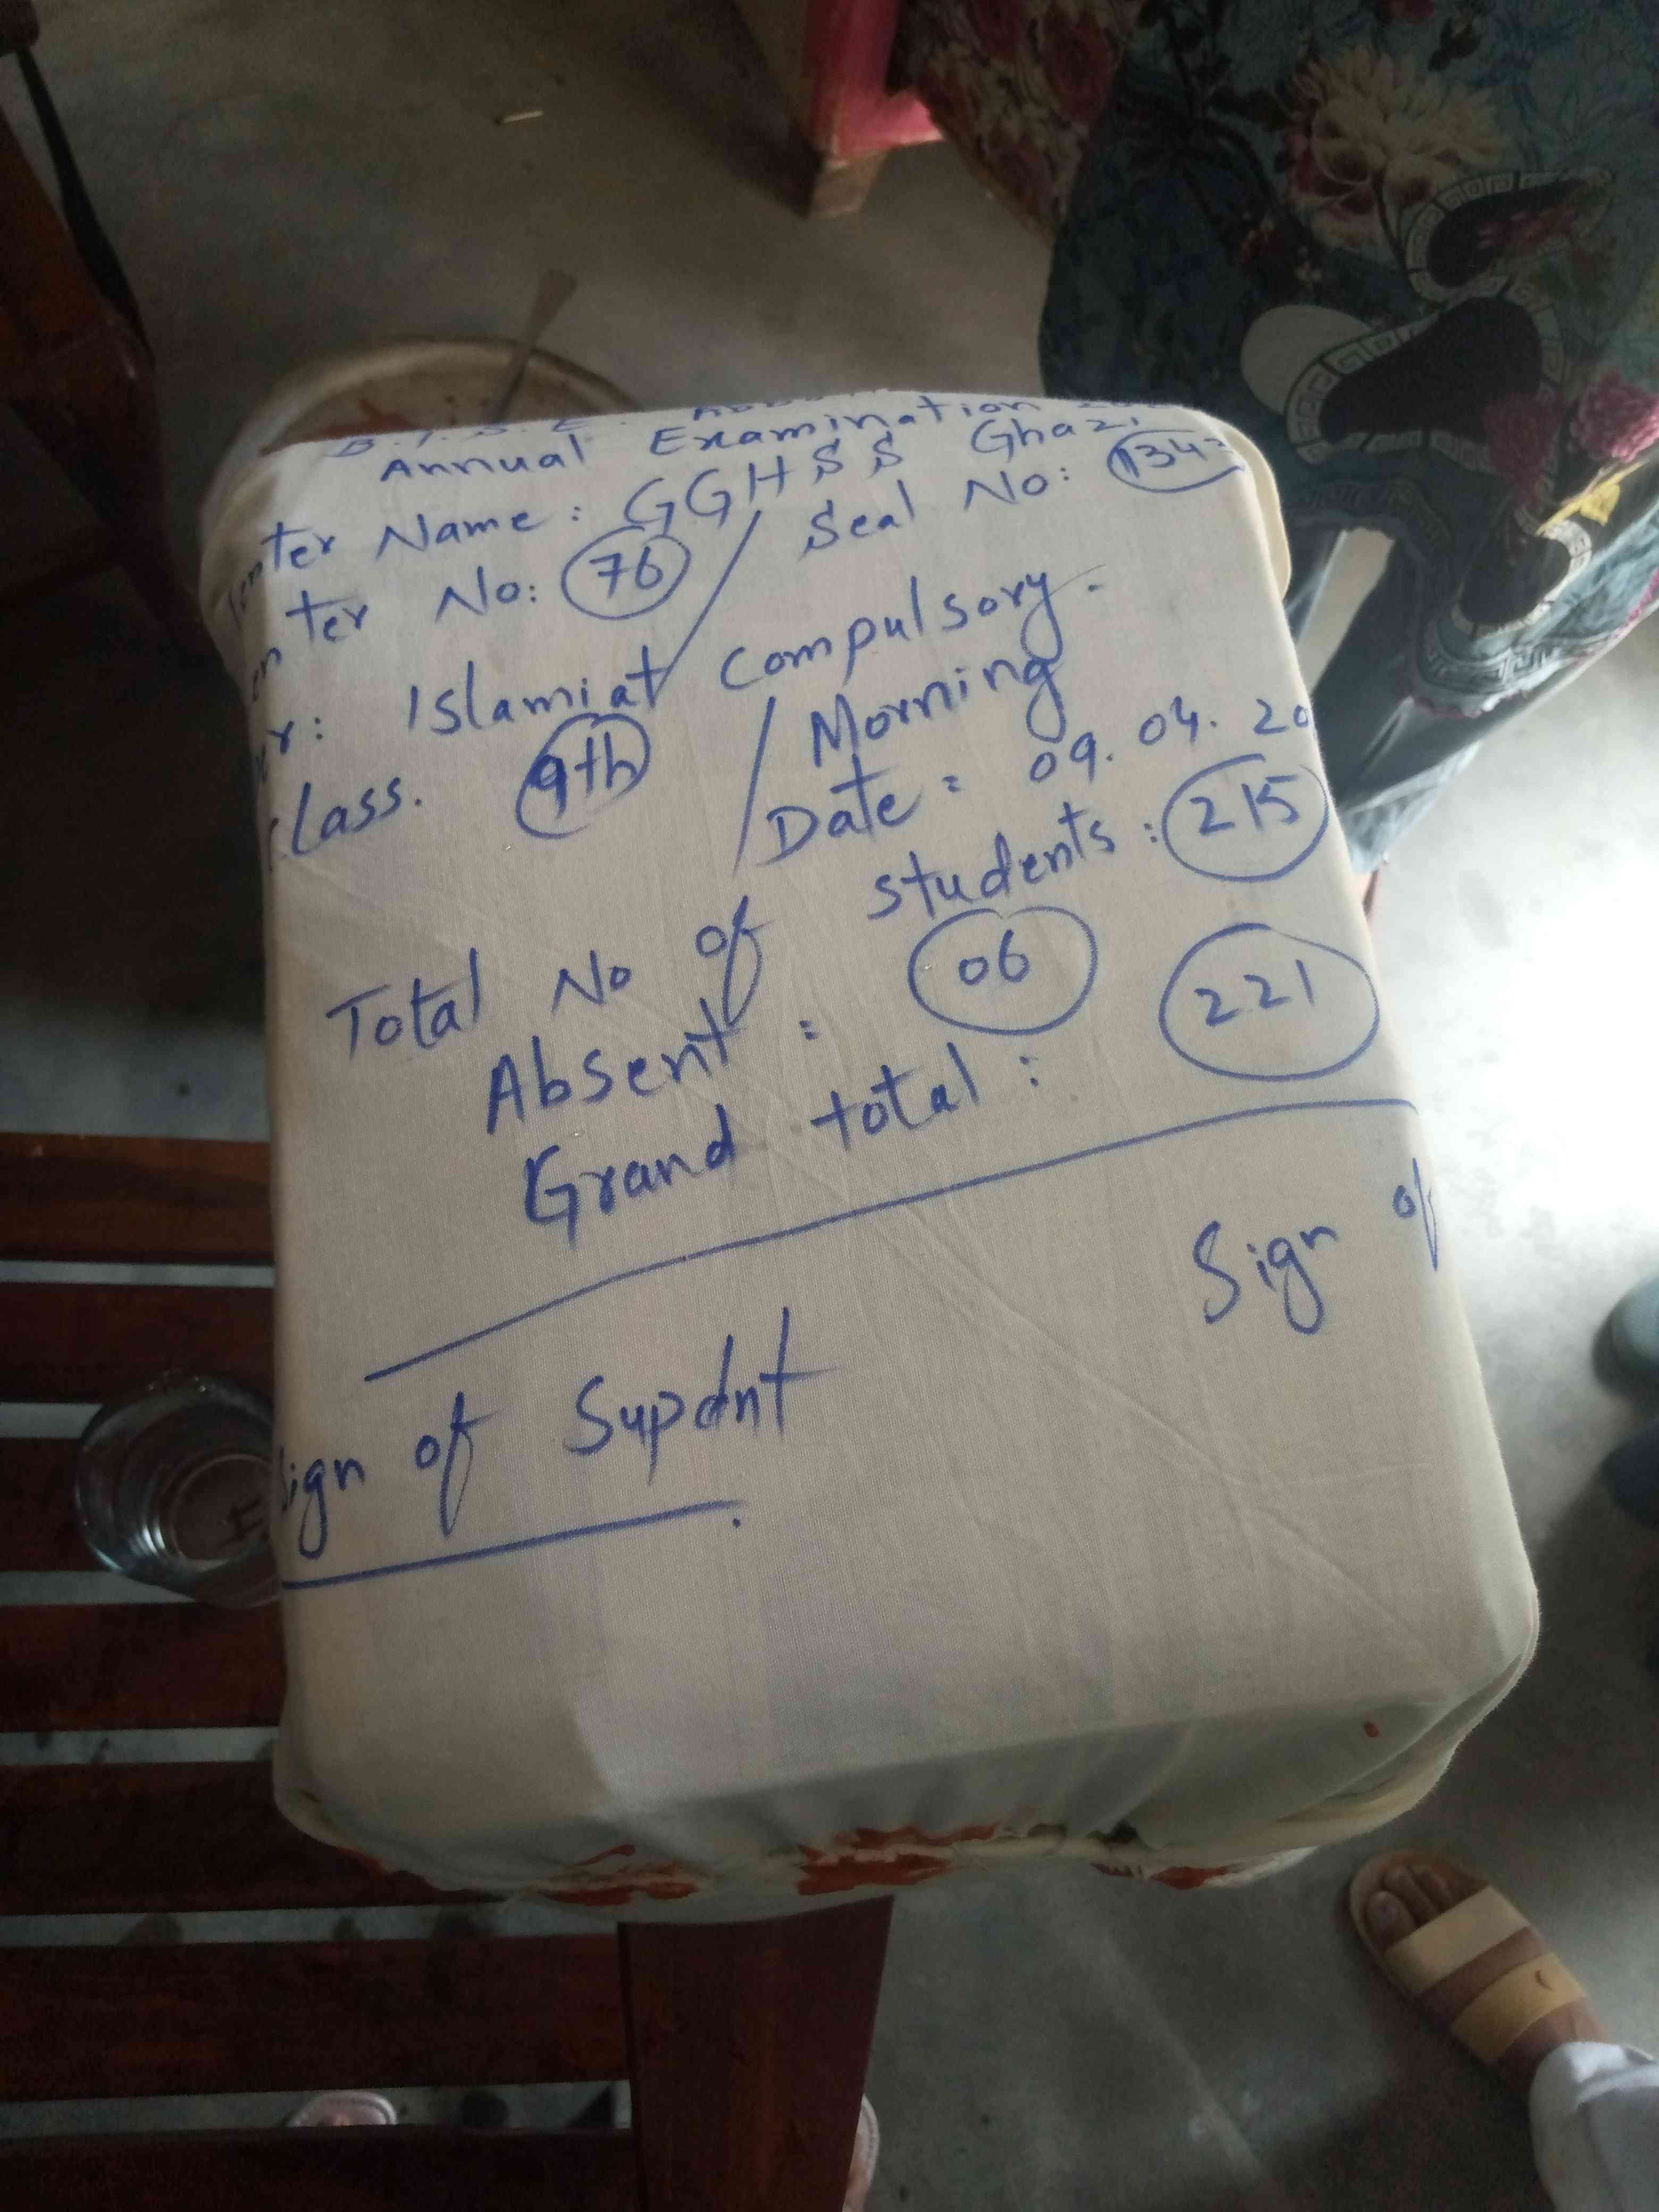 B.I.S.E.
Annual Examination
enter Name: GGHSS Ghazi
enter No: 76 / Seal No: 134
er: Islamiat Compulsory.
Class. 9th / Morning
Date: 09.04.20
Total No of students: 215
Absent: 06
Grand total: 221
Sign of
Sign of Supdnt